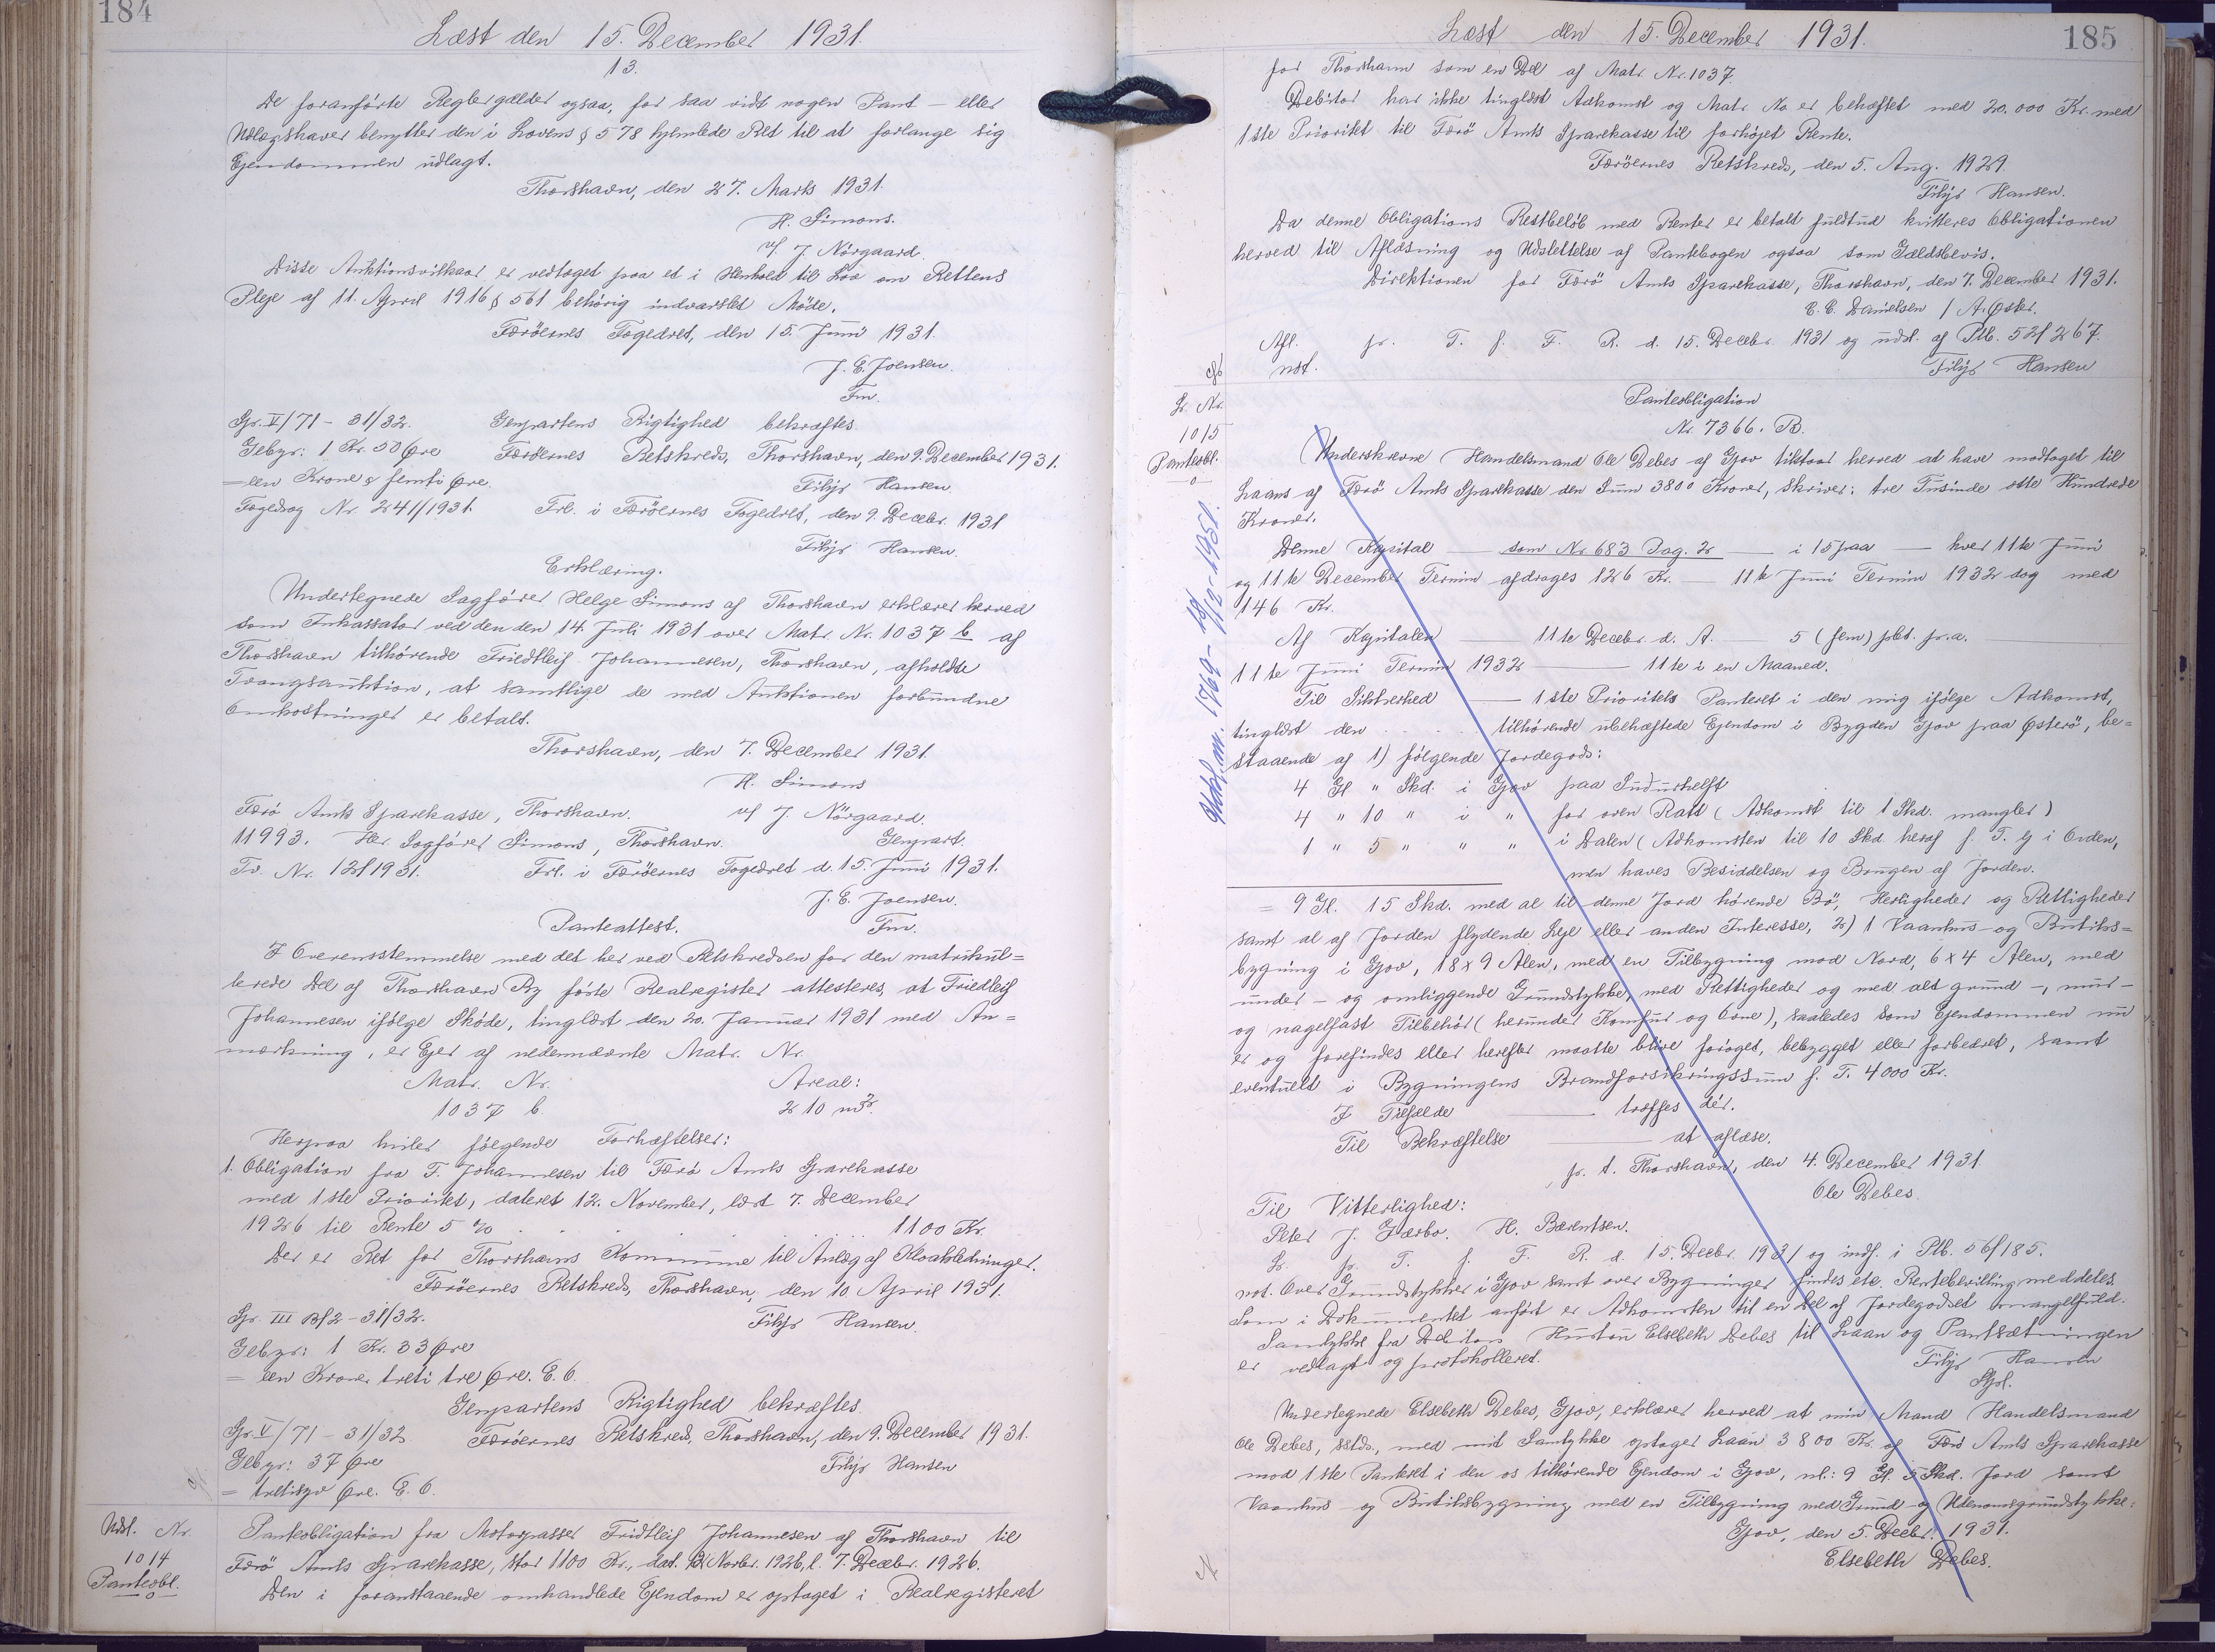 184
Læst den 15. December 1931.
13.
De foranførte Regler gælder ogsaa, for saa vidt nogen Pant - eller
Udlægshaver benytter den i Lovens § 578 hjemlede Ret til at forlange sig
Ejendommen udlagt.
Thorshavn, den 27. Marts 1931.
H. Simons.
v/ J. Nörgaard.
Disse Auktionsvilkaar er vedtaget paa et i Henhold til Lov om Rettens
Pleje af 11. April 1916 § 561 behörig indvarslet Möde.
Færöernes Fogedret, den 15. Juni 1931.
J. E. Joensen.
Fm.
Gr. V/71 - 31/32. Genpartens Rigtighed bekræftes
Gebyr: 1 Kr. 50 Øre Færöernes Retskreds, Thorshavn, den 9. December 1931.
= een Krone & femti Øre. Filip Hansen
Fogedsag Nr. 241/1931. Frl. i Færöernes Fogedret, den 9. Decebr. 1931
Filip Hansen.
Erklæring.
Undertegnede Sagförer Helge Simons af Thorshavn erklærer herved
som Inkassator ved den den 14. Juli 1931 over Matr. Nr. 1037 b af
Thorshavn tilhörende Friedtleif Johannesen, Thorshavn, afholdte
Tvangsauktion, at samtlige de med Auktionen forbundne
Omkostninger er betalt.
Thorshavn, den 7. December 1931.
H. Simons
Færö Amts Sparekasse, Thorshavn. v/ J. Nörgaard.
11993. Hr. Sagförer Simons, Thorshavn. Genpart.
Tv. Nr. 12/1931. Frl. i Færöernes Fogedret d. 15. Juni 1931.
J. E. Joensen.
Panteattest. Fm.
I Overensstemmelse med det her ved Retskredsen for den matrikul=
lerede Del af Thorshavn By förte Realregister attesteres, at Friedleif
Johannesen ifölge Sköde, tinglæst den 20. Januar 1931 med An=
mærkning, er Ejer af nedennævnte Matr. Nr.
Matr. Nr. Areal:
1037 b. 210 m².
Herpaa hviler følgende Forhæftelser:
1. Obligation fra F. Johannesen til Færö Amts Sparekasse
med 1ste Prioritet, dateret 12. November, læst 7. December
1926 til Rente 5 % . . . . . . 1100 Kr.
Der er Ret for Thorshavns Kommune til Anlæg af Kloakledninger.
Færöernes Retskreds, Thorshavn, den 10 April 1931.
Gr. III B/2 - 31/32. Filip Hansen.
Gebyr: 1 Kr. 33 Øre
= een Krone treti tre Øre. E. O.
Genpartens Rigtighed bekræftes
Gr. V/71 - 31/32. Færöernes Retskreds, Thorshavn, den 9. December 1931.
Gebyr: 37 Øre Filip Hansen
= tretisyv Øre. E. O.
Udsl. Nr.
1014
Panteobl.
Panteobligation fra Motorpasser Fridtleif Johannesen af Thorshavn til
Færö Amts Sparekasse, stor 1100 Kr., dat. 12 Novbr. 1926, l. 7. Decebr. 1926.
Den i foranstaaende omhandlede Ejendom er optaget i Realregisteret
185
Læst den 15. December 1931.
for Thorshavn som en Del af Matr. Nr. 1037.
Debitor har ikke tinglæst Adkomst og Matr. No. er behæftet med 20.000 Kr. med
1ste Prioritet til Færö Amts Sparekasse til forhöjet Rente.
Færöernes Retskreds, den 5. Aug. 1929.
Filip Hansen.
Da denne Obligations Restbeløb med Renter er betalt fuldtud kvitteres Obligationen
herved til Aflæsning og Udslettelse af Pantebogen ogsaa som Gældsbevis.
Direktionen for Færö Amts Sparekasse, Thorshavn, den 7. December 1931.
E. C. Danielsen / A. Øster.
Afl. pr. T. f. F. R. d. 15. Decebr. 1931 og udsl. af Ptb. 52/267.
not. Filip Hansen
L. Nr.
1015
Panteobl.
Udsl. m. 1769- 18/12-1951.
Panteobligation
Nr. 7366. B.
Underskrevne Handelsmand Ole Debes af Gjov tilstaar herved at have modtaget til
Laans af Færö Amts Sparekasse den Sum 3800 Kroner, skriver: tre Tusinde otte Hundrede
Kroner.
Denne Kapital — som Nr 683 Dag. 2 — i 15 paa — hver 11te Juni
og 11te December Termin afdrages 126 Kr. — 11te Juni Termin 1932 dog med
146 Kr.
Af Kapitalen — 11te Decebr. d. A. — 5 (fem) pCt. p.a.
11te Juni Termin 1932 — 11te i en Maaned.
Til Sikkerhed — 1ste Prioritets Panteret i den mig ifølge Adkomst,
tinglæst den . . . . . tilhörende ubehæftede Ejendom i Bygden Gjov paa Østerö, be=
staaende af 1) følgende Jordegods:
4 Gl " Skd. i Gjov paa Suðurhelft
4 " 10 " i " for oven Ratt (Adkomst til 1 Skd. mangler)
1 " 5 " " " i Dalen (Adkomsten til 10 Skd heraf f. T. ej i Orden,
men haves Besiddelsen og Brugen af Jorden.
= 9 Gl. 15 Skd. med al til denne Jord hørende Bö, Herligheder og Rettigheder
samt al af Jorden flydende Leje eller anden Interesse, 2) 1 Vaanhus- og Butiks=
bygning i Gjov, 18 x 9 Alen, med en Tilbygning mod Nord, 6 x 4 Alen, med
under - og omliggende Grundstykke, med Rettigheder og med alt grund -, mur -
og nagelfast Tilbehör (herunder Komfur og Ovne), saaledes som Ejendommen nu
er og forefindes eller herefter maatte blive foröget, bebygget eller forbedret, samt
eventuelt i Bygningens Brandforsikringssum f. T. 4000 Kr.
I Tilfælde — træffes dér.
Til Bekræftelse — at aflæse.
p. t. Thorshavn, den 4. December 1931.
Ole Debes.
Til Vitterlighed:
Peter J. Gærbo. H. Bærentsen.
L. pr. T. f. F. R. d. 15. Decbr. 1931 og indf. i Ptb. 56/185.
not. Over Grundstykker i Gjov samt over Bygninger findes etc. Rentebevilling meddeles.
Som i Dokumentet anført er Adkomsten til en Del af Jordegodset mangelfuld.
Samtykke fra Debitors Hustru Elsebeth Debes til Laan og Pantsætningen
er vedlagt og protokolleret. Filip Hansen
Undertegnede Elsebeth Debes, Gjov, erklærer herved at min Mand Handelsmand
Ole Debes, sstds., med mit Samtykke optager Laan 3800 Kr. af Færö Amts Sparekasse
mod 1ste Panteret i den os tilhörende Ejendom i Gjov, nl.: 9 Gl. 5 Skd. Jord samt
Vaanhus - og Butiksbygning med en Tilbygning med Grund - og Udenomsgrundstykke.
Gjov, den 5. Decbr. 1931.
Elsebeth Debes.